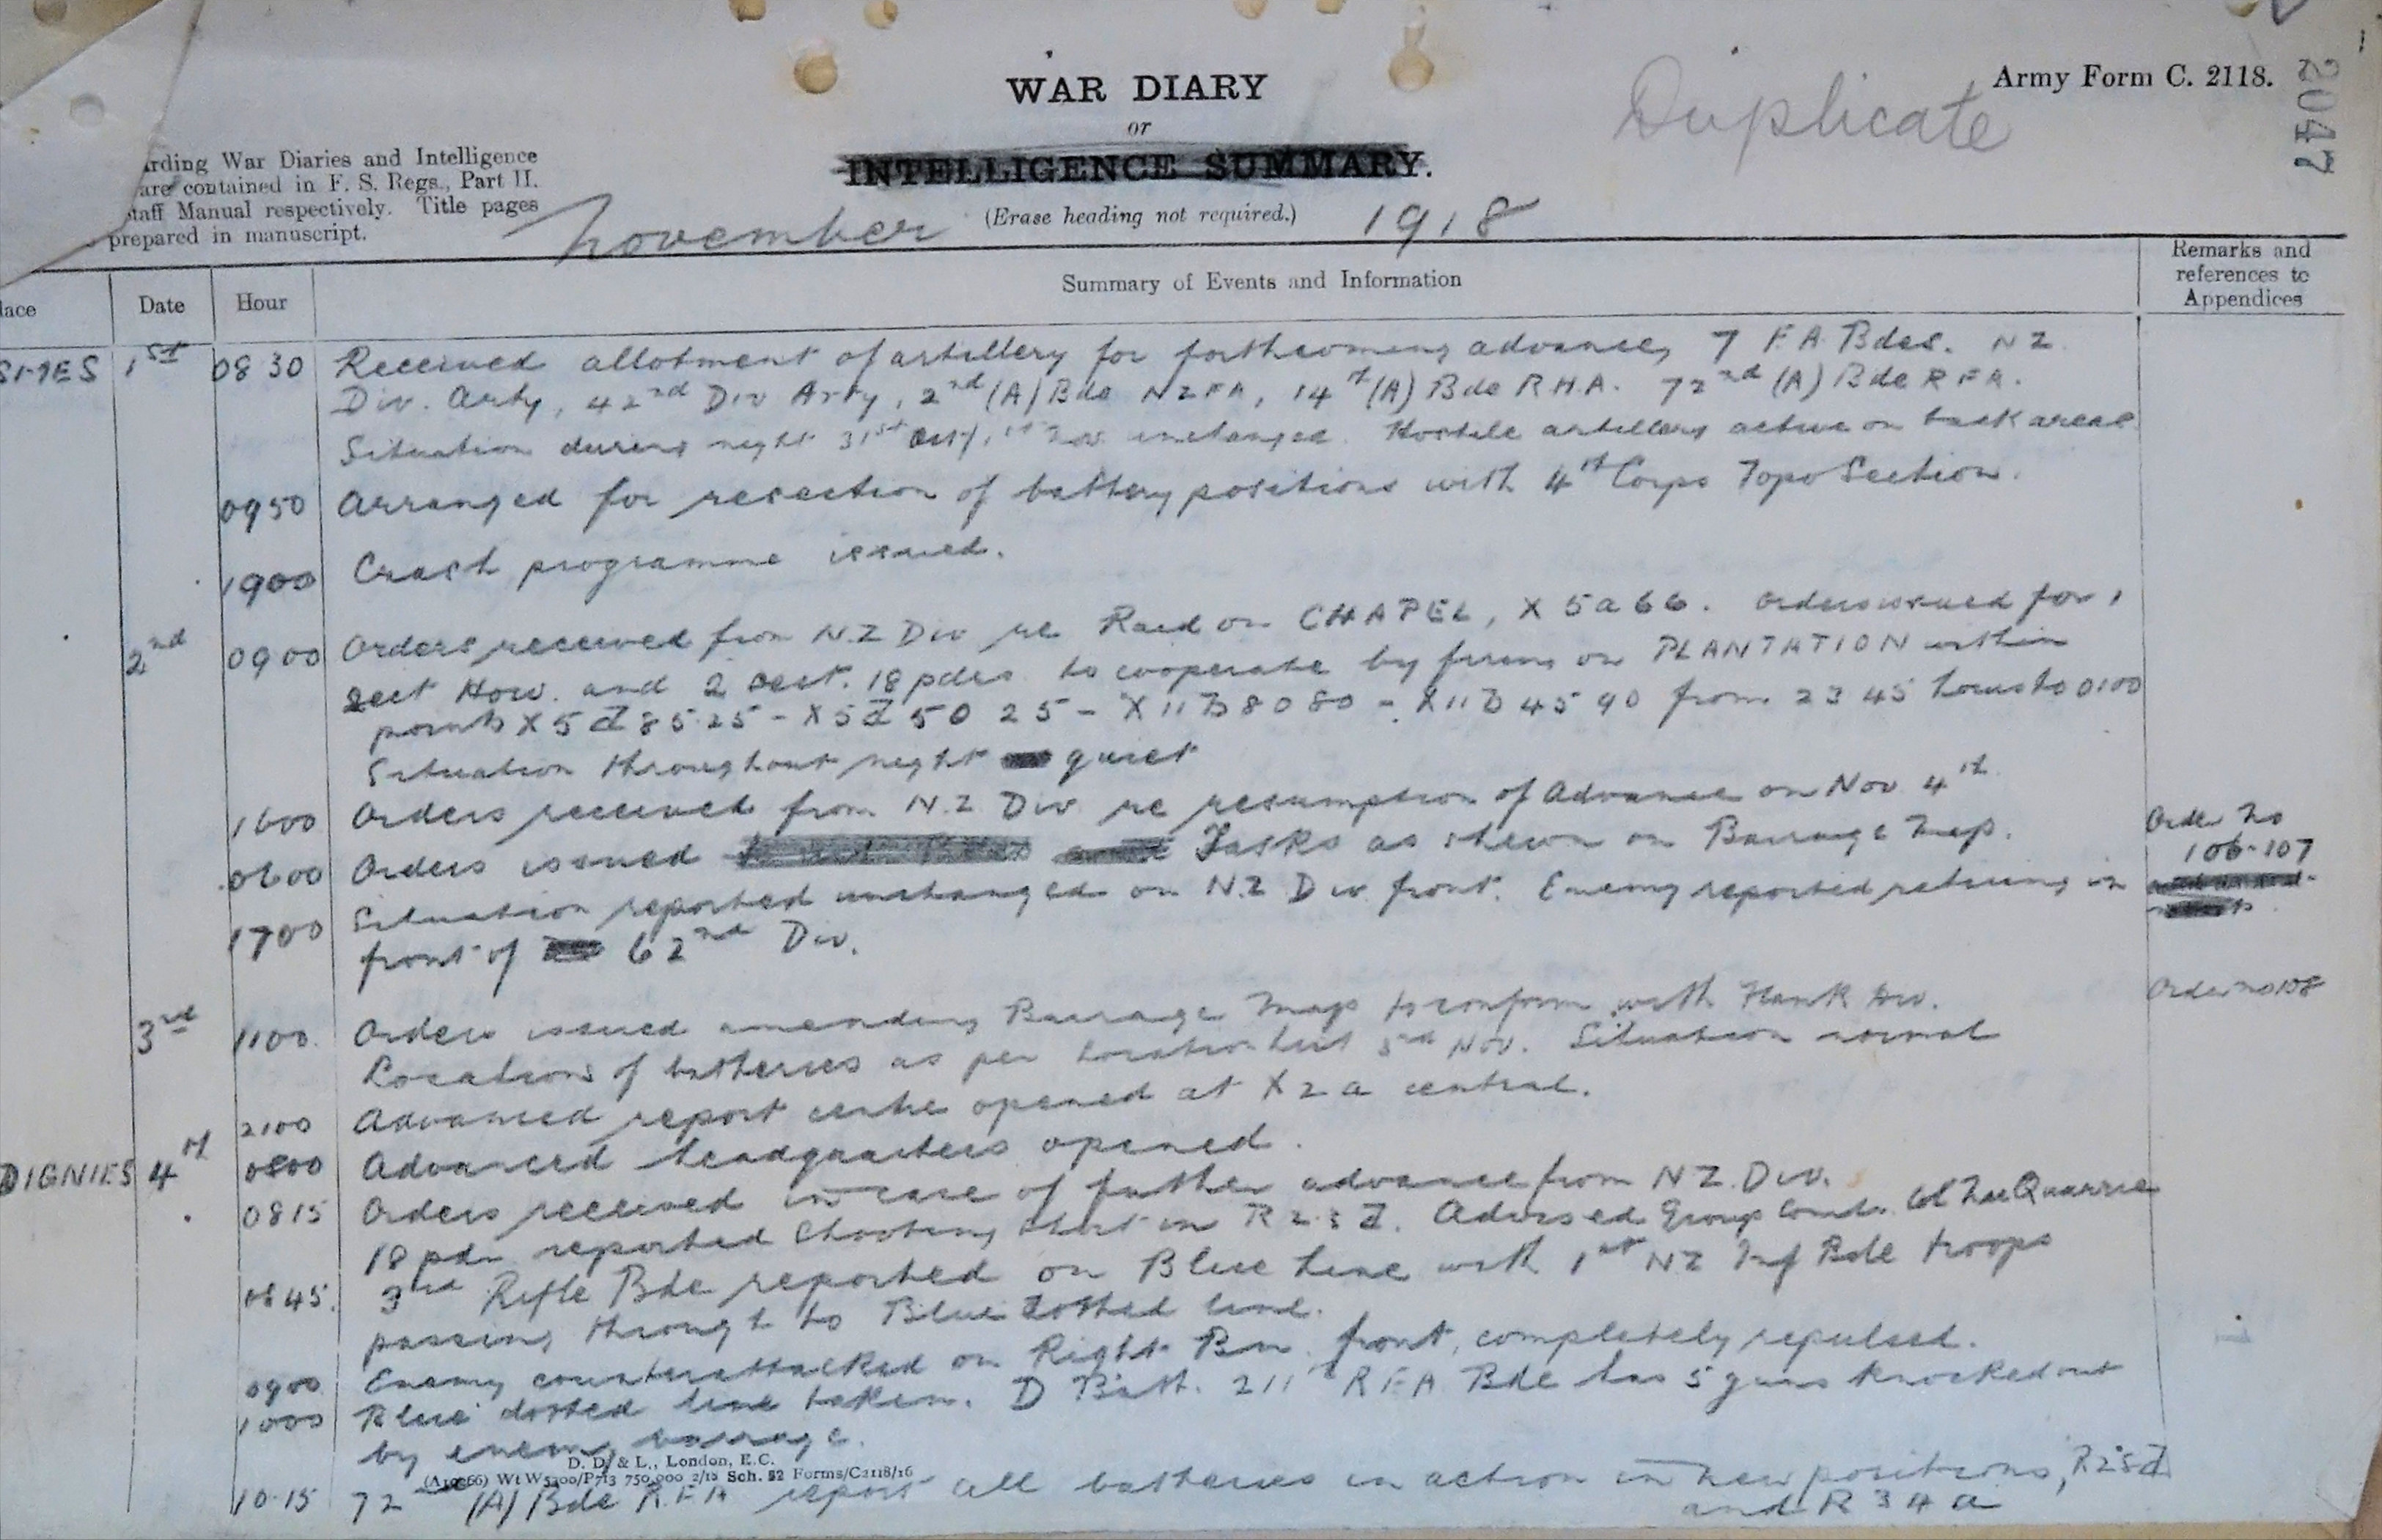 WAR DIARY
or
INTELLIGENCE SUMMARY.
(Erase heading not required.)
November 1918
Duplicate
Army Form C. 2118.
2047
arding War Diaries and Intelligence
are contained in F. S. Regs., Part II.
Staff Manual respectively. Title pages
prepared in manuscript.
lace Date Hour Summary of Events and Information Remarks and references to Appendices
1st 0830 Received allotment of artillery for forthcoming advance, 7 F.A. Bdes. NZ
Div. Arty, 42nd Div Arty, 2nd (A) Bde NZFA, 14th (A) Bde RHA. 72nd (A) Bde RFA.
Situation during night 31st Oct/1st Nov unchanged. Hostile artillery active on back areas
0950 Arranged for resection of battery positions with 4th Corps Topo Section.
1900 Crash programme issued.
2nd 0900 Orders received from N.Z Div re Raid on CHAPEL, X 5 a 66. Orders issued for 1
sect How. and 2 sect. 18 pdrs to cooperate by firing on PLANTATION within
points X 5 d 85.25 - X 5 d 50 25 - X 11 B 80 80 - X 11 B 45 90 from 2345 hours to 0100
Situation throughout night quiet
1600 Orders received from N.Z Div re resumption of Advance on Nov 4th
0600 Orders issued Tasks as shewn on Barrage Map. Order No 106-107
1700 Situation reported unchanged on N.Z Div front. Enemy reported retiring in
front of 62nd Div.
3rd 1100 Orders issued amending Barrage Map to conform with Flank Div. Order no 108
Location of batteries as per Location List 3rd Nov. Situation normal
2100 Advanced report centre opened at X 2 a central.
DIGNIES 4th 0800 Advanced headquarters opened.
0815 Orders received in case of further advance from N.Z. Div.
18 pdr reported shooting short in R 2 d. Advised Group Comdr. Col McQuarrie
0845. 3rd Rifle Bde reported on Blue Line with 1st NZ Inf Bde troops
passing through to Blue dotted line.
0900 Enemy counterattacked on Right Bn. front, completely repulsed.
1000 Blue dotted line taken. D Batt. 211th RFA Bde has 5 guns knocked out
by enemy barrage.
D. D. & L., London, E.C.
Wt W5300/P713 750,000 2/18 Sch. 52 Forms/C2118/16
10.15 72 (A) Bde R.F.A report all batteries in action in new positions,
and R 34 a